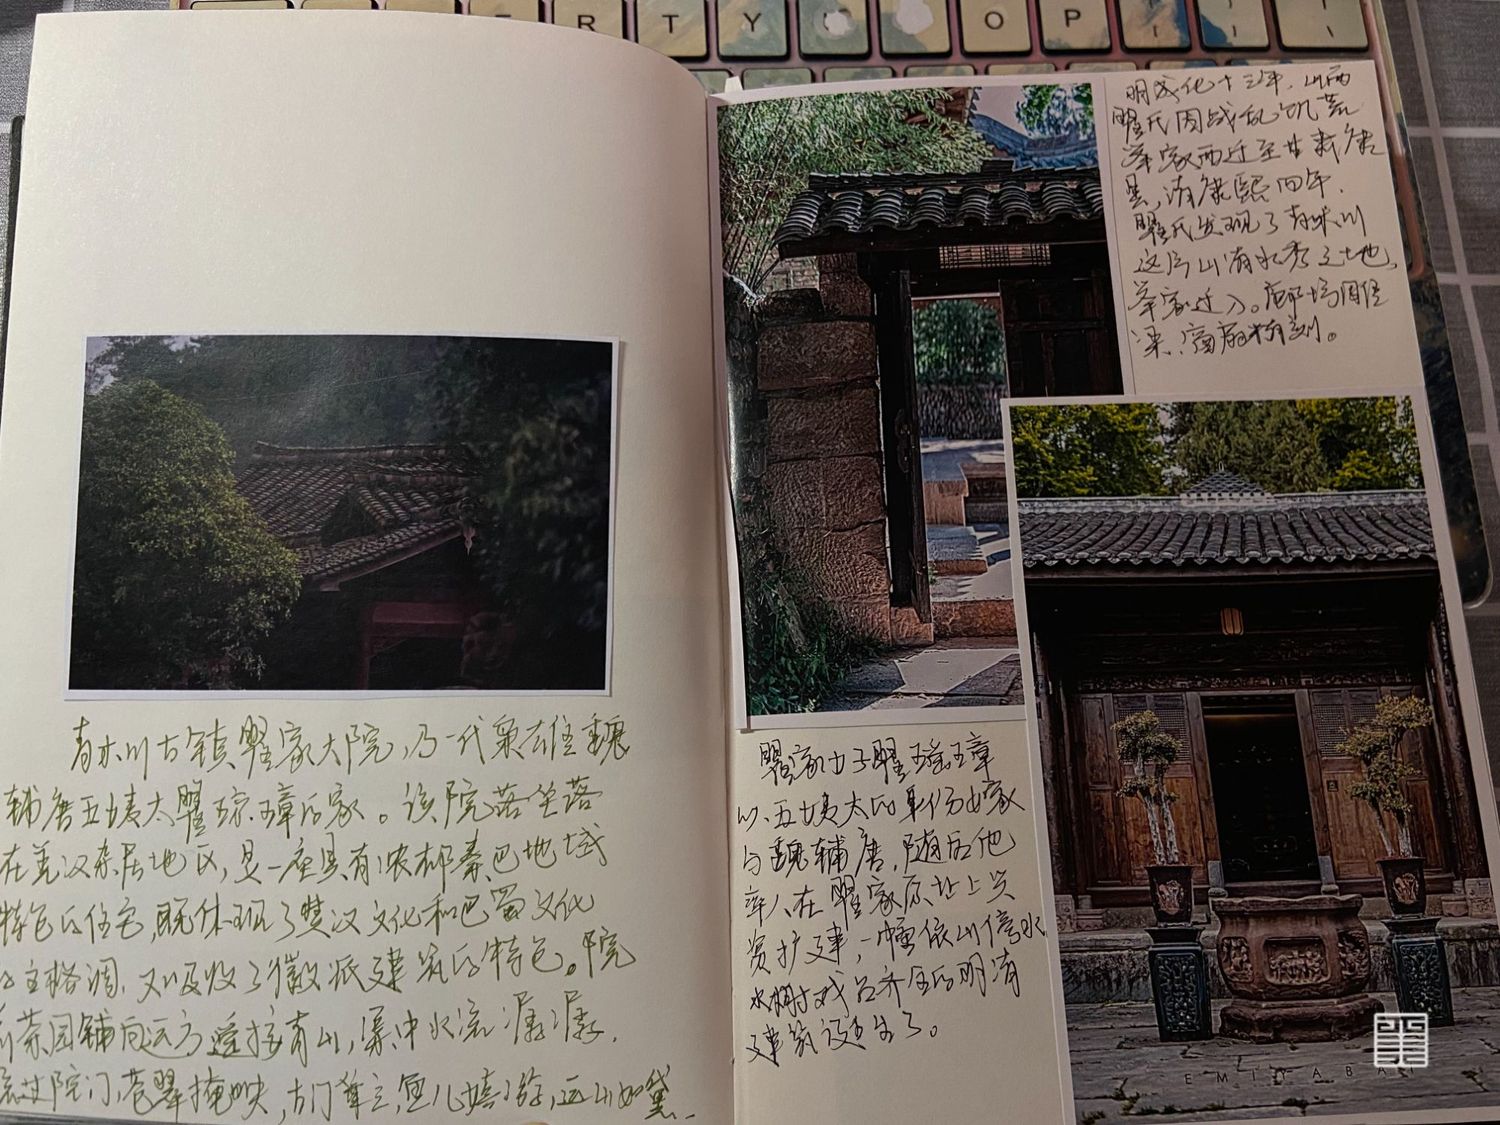 E R T Y O P
青木川古镇瞿家大院，乃一代枭雄魏
辅唐五姨太瞿琼璋的家。该院落坐落
在羌汉杂居地区，是一座具有浓郁秦巴地域
特色的住宅，既体现了楚汉文化和巴蜀文化
的主格调，又吸收了徽派建筑的特色。院
前茶园铺向远方遥接青山，渠中水流潺潺，
院门，苍翠掩映，古门耸立，鱼儿嬉游，远山如黛
明成化十三年，山西
瞿氏因战乱饥荒
举家西迁至甘肃康
县，清康熙四年，
瞿氏发现了青木川
这片山清水秀之地，
举家迁入。
深，窗扇精刻。
瞿家女子瞿瑶璋
以五姨太的身份出嫁
与魏辅唐，随后他
率人在瞿家原址上出
资扩建，一幢依山傍水
水榭戏台齐全的明清
建筑诞生了。